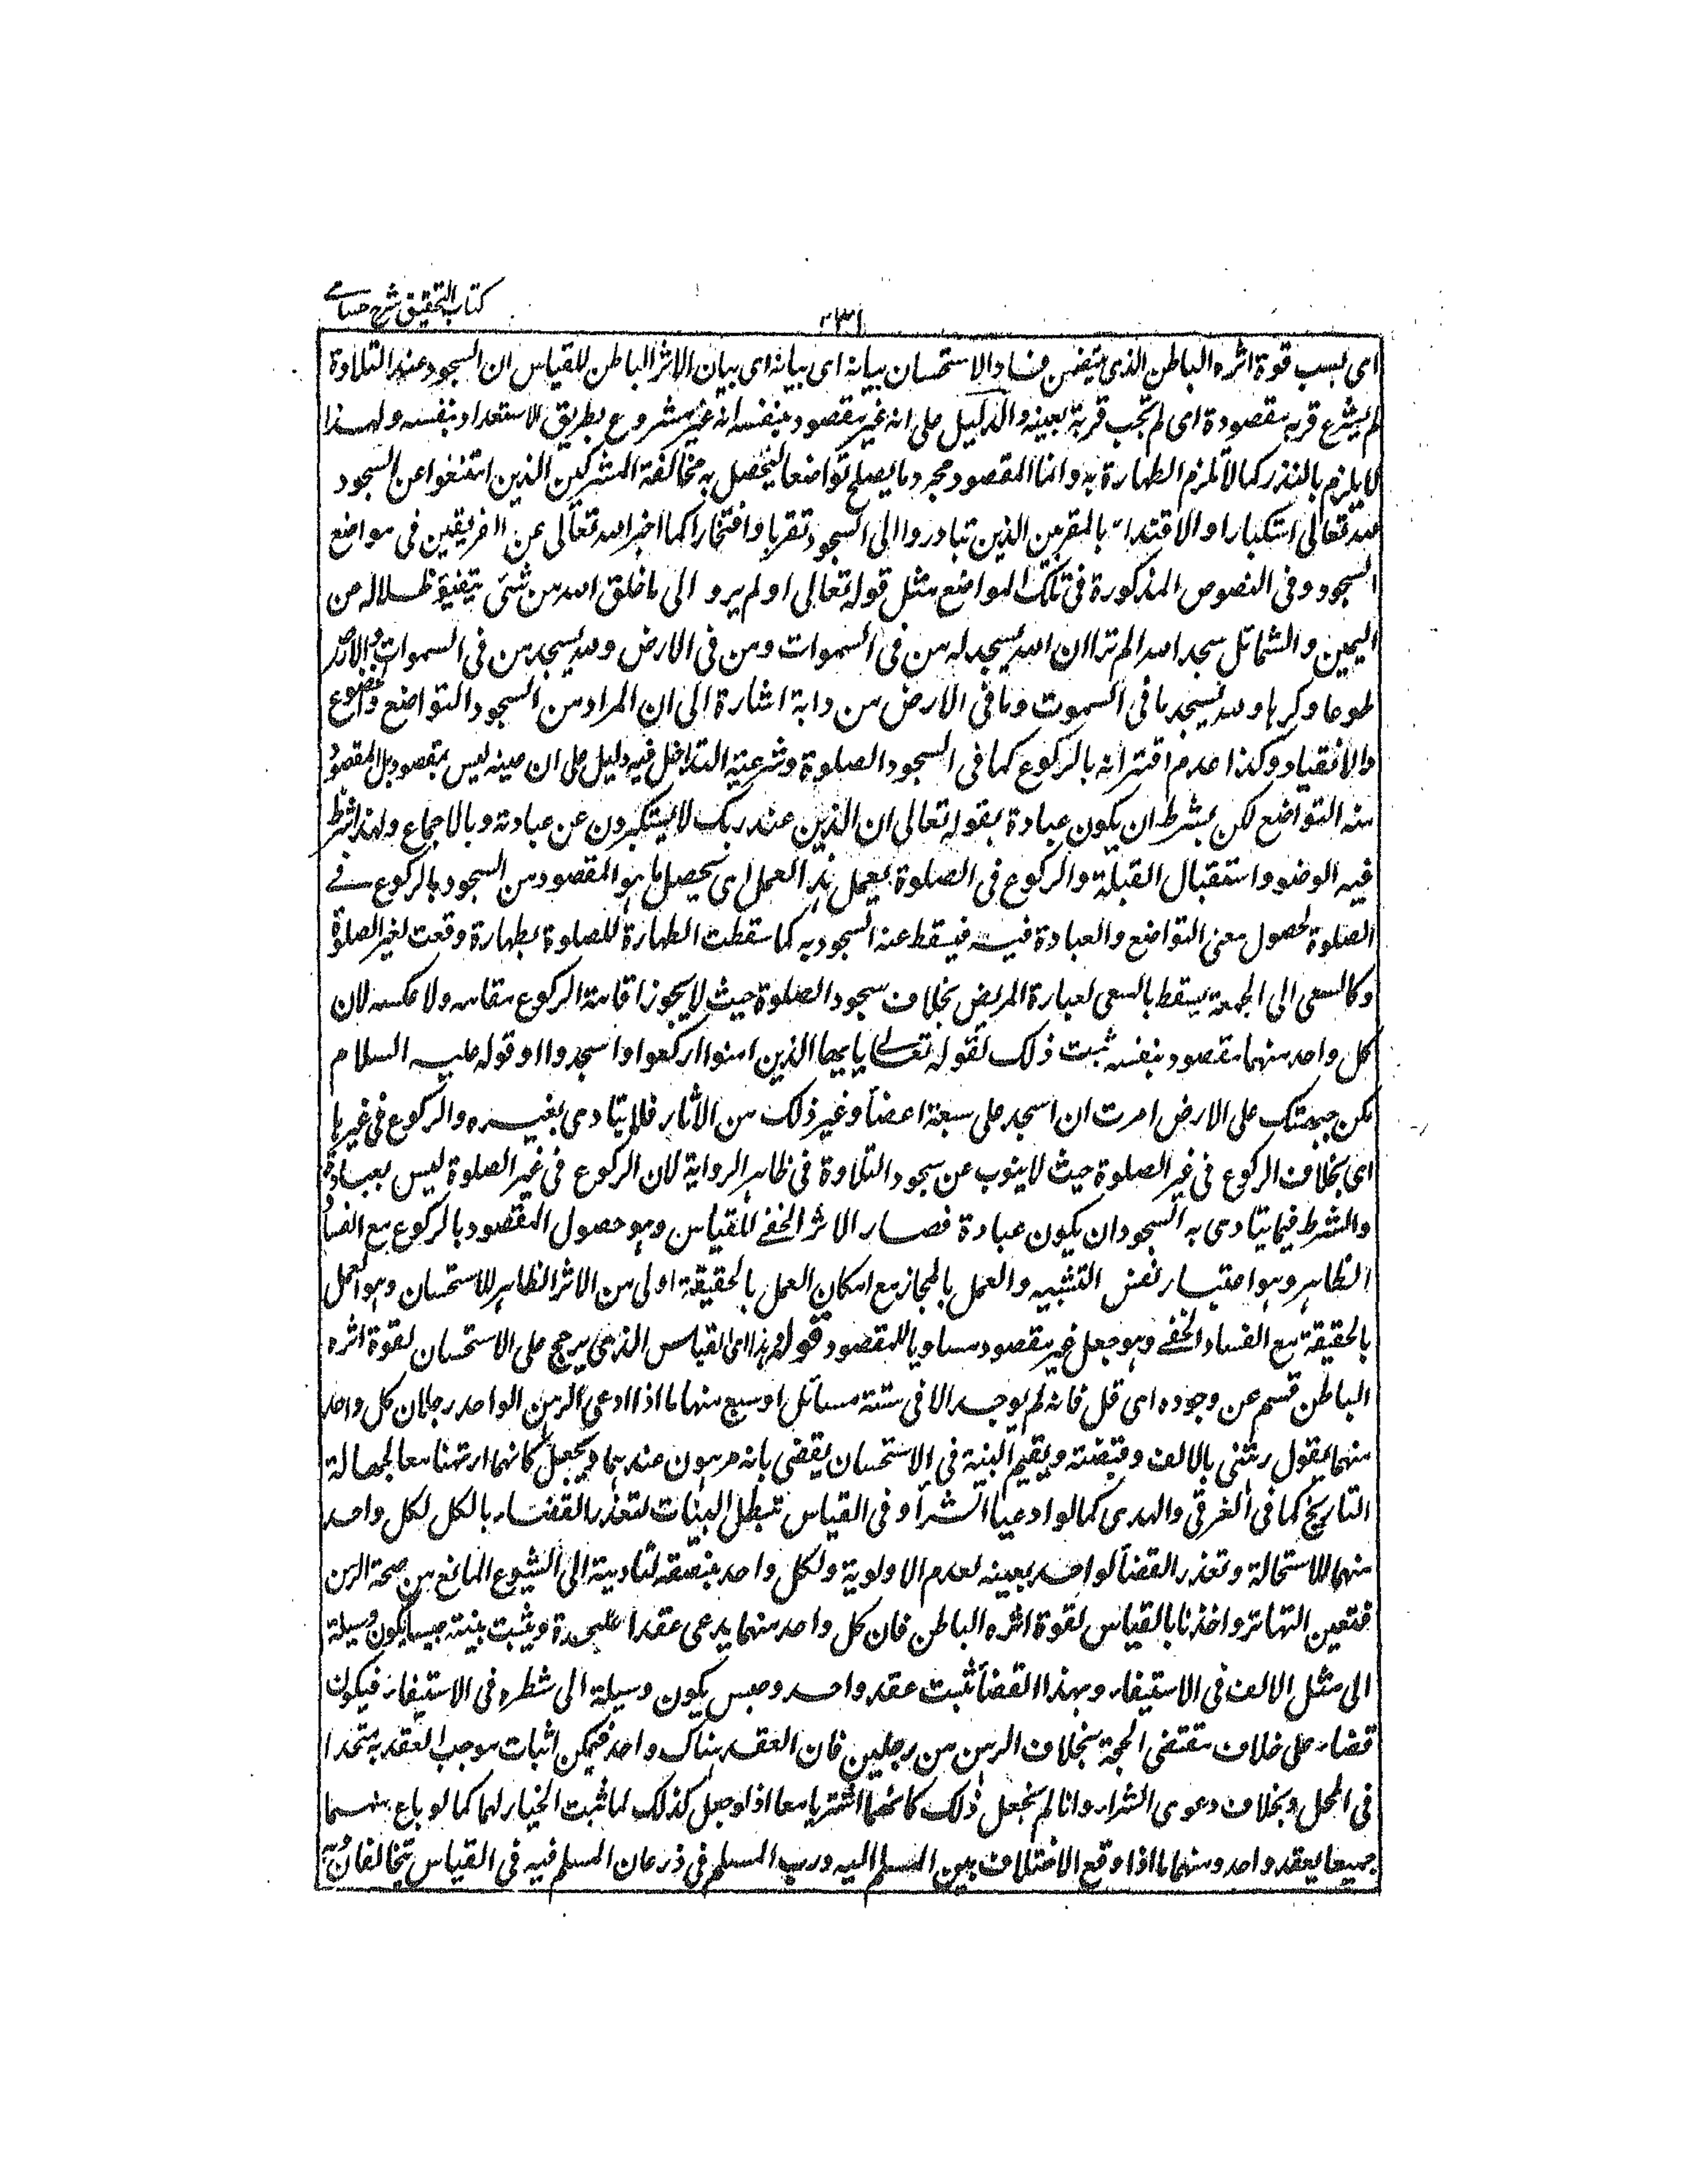 كتاب التحقيق شرح حسامے
٢٣١
اى بسبب قوة اثره الباطن الذى يتضمن فساد الاستحسان بيانه اى بيانه اى بيان الاثر الباطن للقياس ان السجود عند التلاوة
لم يشرع قربة مقصودة اى لم تجب قربة بعينه والدليل على انه غير مقصود بنفسه انه غير مشروع بطريق الاستعداد بنفسه ولهذا
لا يلزم بالنذر كما لا تلزم الطهارة به وانما المقصود مجرد ما يصلح تواضعا ليحصل به مخالفة المشركين الذين امتنعوا عن السجود
لله تعالى استكبارا و الاقتداء بالمقربين الذين تبادروا الى السجود تقربا وافتخارا كما اخبر الله تعالى عن الفريقين فى مواضع
السجود وفى النصوص المذكورة فى تلك المواضع مثل قوله تعالى اولم يرو الى ما خلق الله من شئى يتفيؤ ظلاله من
اليمين و الشمائل سجد الله الم تر ان الله يسجد له من فى السموات ومن فى الارض ولله يسجد من فى السموات والارض
طوعا وكرها ولله يسجد ما فى السموت وما فى الارض من دابة اشارة الى ان المراد من السجود التواضع والخضوع
والانقياد وكذا عدم اقترانه بالركوع كما فى السجود الصلوة وشرعية التداخل فيه دليل على ان عينه ليس بمقصود بل المقصود
منه التواضع لكن بشرط ان يكون عبادة بقوله تعالى ان الذين عند ربك لا يستكبرون عن عبادته وبالاجماع ولهذا شرط
فيه الوضوء واستقبال القبلة والركوع فى الصلوة يعمل هذا العمل اى يحصل ما هو المقصود من السجود بالركوع فے
الصلوة لحصول معنى التواضع والعبادة فيه فيسقط عنه السجود به كما سقطت الطهارة للصلوة بطهارة وقعت لغير الصلوة
وكالسعى الى الجمعة يسقط بالسعى لعيادة المريض بخلاف سجود الصلوة حيث لا يجوز اقامة الركوع مقامه ولا عكسه لان
كل واحد منهما مقصود بنفسه ثبت ذلك لقوله تعالى يايها الذين امنوا اركعوا واسجدوا وقوله عليه السلام
مكن جبهتك على الارض امرت ان اسجد على سبعة اعضاء وغير ذلك من الاثار فلا يتادى بغيره والركوع فى غيرها
اى بخلاف الركوع فى غير الصلوة حيث لا ينوب عن سجود التلاوة فى ظاهر الرواية لان الركوع فى غير الصلوة ليس بعبادة
والشرط فيما يتادى به السجود ان يكون عبادة فصار الاثر الخفے للقياس وهو حصول المقصود بالركوع مع الفساد
الظاهر وهو اعتبار نفس التشبيه والعمل بالمجاز مع امكان العمل بالحقيقة اولى من الاثر الظاهر للاستحسان وهو العمل
بالحقيقة مع الفساد الخفے وهو جعل غير مقصود مساويا للمقصود قوله وهذا اى القياس الذى يرجح على الاستحسان لقوة اثره
الباطن قسم عن وجوده اى قل فانه لم يوجد الا فى ستة مسائل او سبع منها ما اذا ادعى الرهن الواحد رجلان كل واحد
منهما يقول رهنتنى بالالف وقبضته ويقيم البنية فى الاستحسان يقضى بانه مرهون عندهما ويجعل كانهما ارتهنا معا لجهالة
التاريخ كما فى الغرقى والهدى كما لو ادعيا الشراء وفى القياس تبطل البينات لتعذر القضاء بالكل لكل واحد
منهما للاستحالة وتعذر القضاء لواحد بعينه لعدم الاولوية ولكل واحد بنصفه لتاديته الى الشيوع المانع من صحة الرهن
فتعين التهاتر واخذنا بالقياس لقوة اثره الباطن فان كل واحد منهما يدعى عقدا علىحدة ويثبت بينته حبسا يكون وسيلة
الى مثل الالف فى الاستيفاء وبهذا القضاء ثبت عقد واحد وحبس يكون وسيلة الى شطره فى الاستيفاء فيكون
قضاء على خلاف مقتضى الحجة بخلاف الرهن من رجلين فان العقد هناك واحد فيمكن اثبات موجب العقد به متحدا
فى المحل وبخلاف دعوى الشراء وانا لم نجعل ذلك كانهما اشتريا معا اذ لو جعل كذلك لما ثبت الخيار لهما كما لو باع منهما
جميعا بعقد واحد ومنها ما اذا وقع الاختلاف بين المسلم اليه ورب السلم فى ذرعان المسلم فيه فى القياس يتخالفان